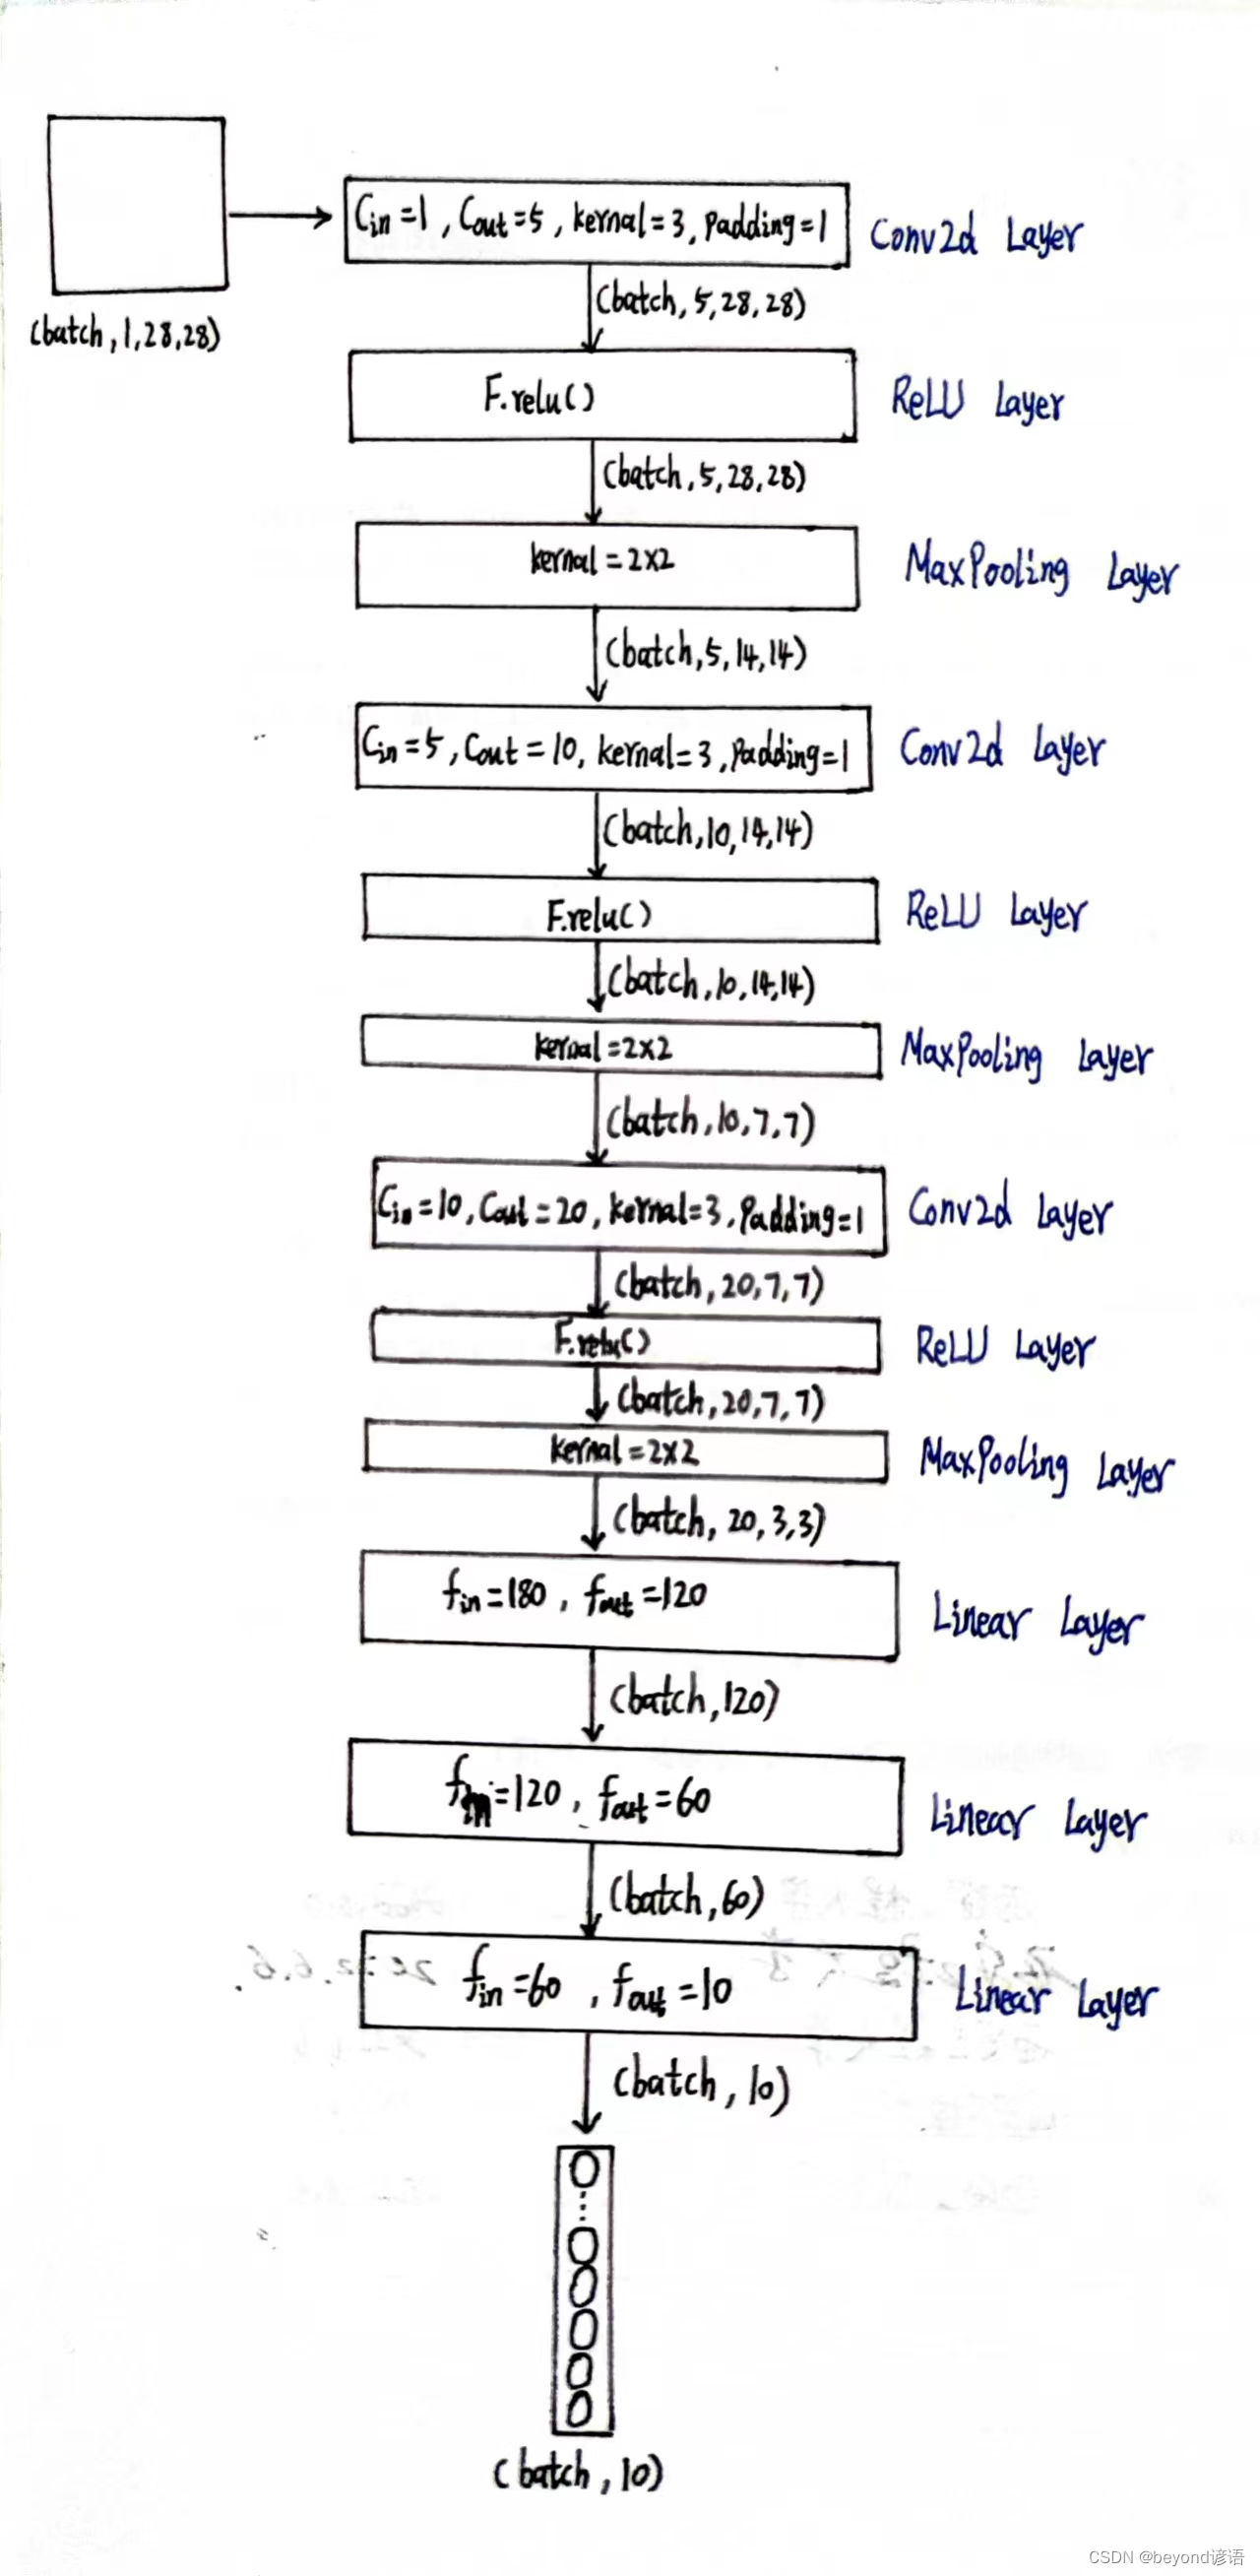 (batch,1,28,28)
Cin=1, Cout=5, kernal=3, Padding=1
Conv2d Layer
(batch,5,28,28)
F.relu()
ReLU Layer
(batch,5,28,28)
kernal=2x2
MaxPooling Layer
(batch,5,14,14)
Cin=5, Cout=10, kernal=3, Padding=1
Conv2d Layer
(batch,10,14,14)
F.relu()
ReLU Layer
(batch,10,14,14)
kernal=2x2
MaxPooling Layer
(batch,10,7,7)
Cin=10, Cout=20, kernal=3, Padding=1
Conv2d Layer
(batch,20,7,7)
F.relu()
ReLU Layer
(batch,20,7,7)
kernal=2x2
MaxPooling Layer
(batch,20,3,3)
fin=180, fout=120
Linear Layer
(batch,120)
fin=120, fout=60
Linear Layer
(batch,60)
fin=60, fout=10
Linear Layer
(batch,10)
(batch,10)
CSDN @beyond谚语